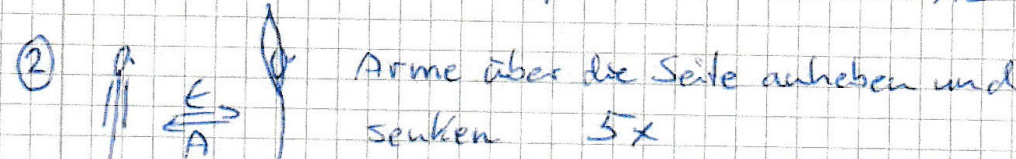 ② Arme über die Seite anheben und
E
A senken 5x